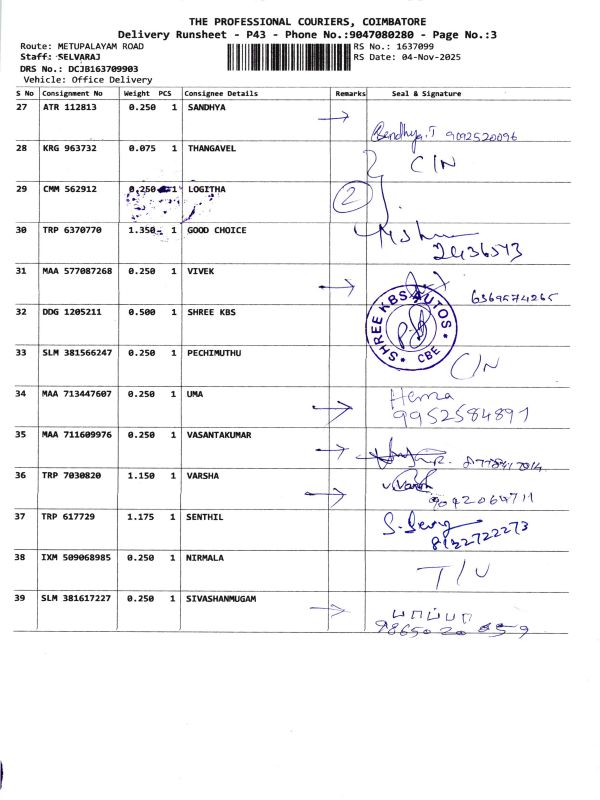 THE PROFESSIONAL COURIERS, COIMBATORE
Delivery Runsheet - P43 - Phone No.:9047080280 - Page No.:3
Route: METUPALAYAM ROAD RS No.: 1637099
Staff: SELVARAJ RS Date: 04-Nov-2025
DRS No.: DCJB163709903
Vehicle: Office Delivery
S No Consignment No Weight PCS Consignee Details Remarks Seal & Signature
27 ATR 112813 0.250 1 SANDHYA
Sandhya.T 9092520096
28 KRG 963732 0.075 1 THANGAVEL C/N
29 CMM 562912 0.250 1 LOGITHA 2
30 TRP 6370770 1.350 1 GOOD CHOICE
2436543
31 MAA 577087268 0.250 1 VIVEK
6369574265
32 DDG 1205211 0.500 1 SHREE KBS SHREE KBS AUTOS CBE
33 SLM 381566247 0.250 1 PECHIMUTHU C/N
34 MAA 713447607 0.250 1 UMA Hema
9952584891
35 MAA 711609976 0.250 1 VASANTAKUMAR
36 TRP 7030820 1.150 1 VARSHA V.Varsh
9042064711
37 TRP 617729 1.175 1 SENTHIL
8122722273
38 IXM 509068985 0.250 1 NIRMALA T/U
39 SLM 381617227 0.250 1 SIVASHANMUGAM